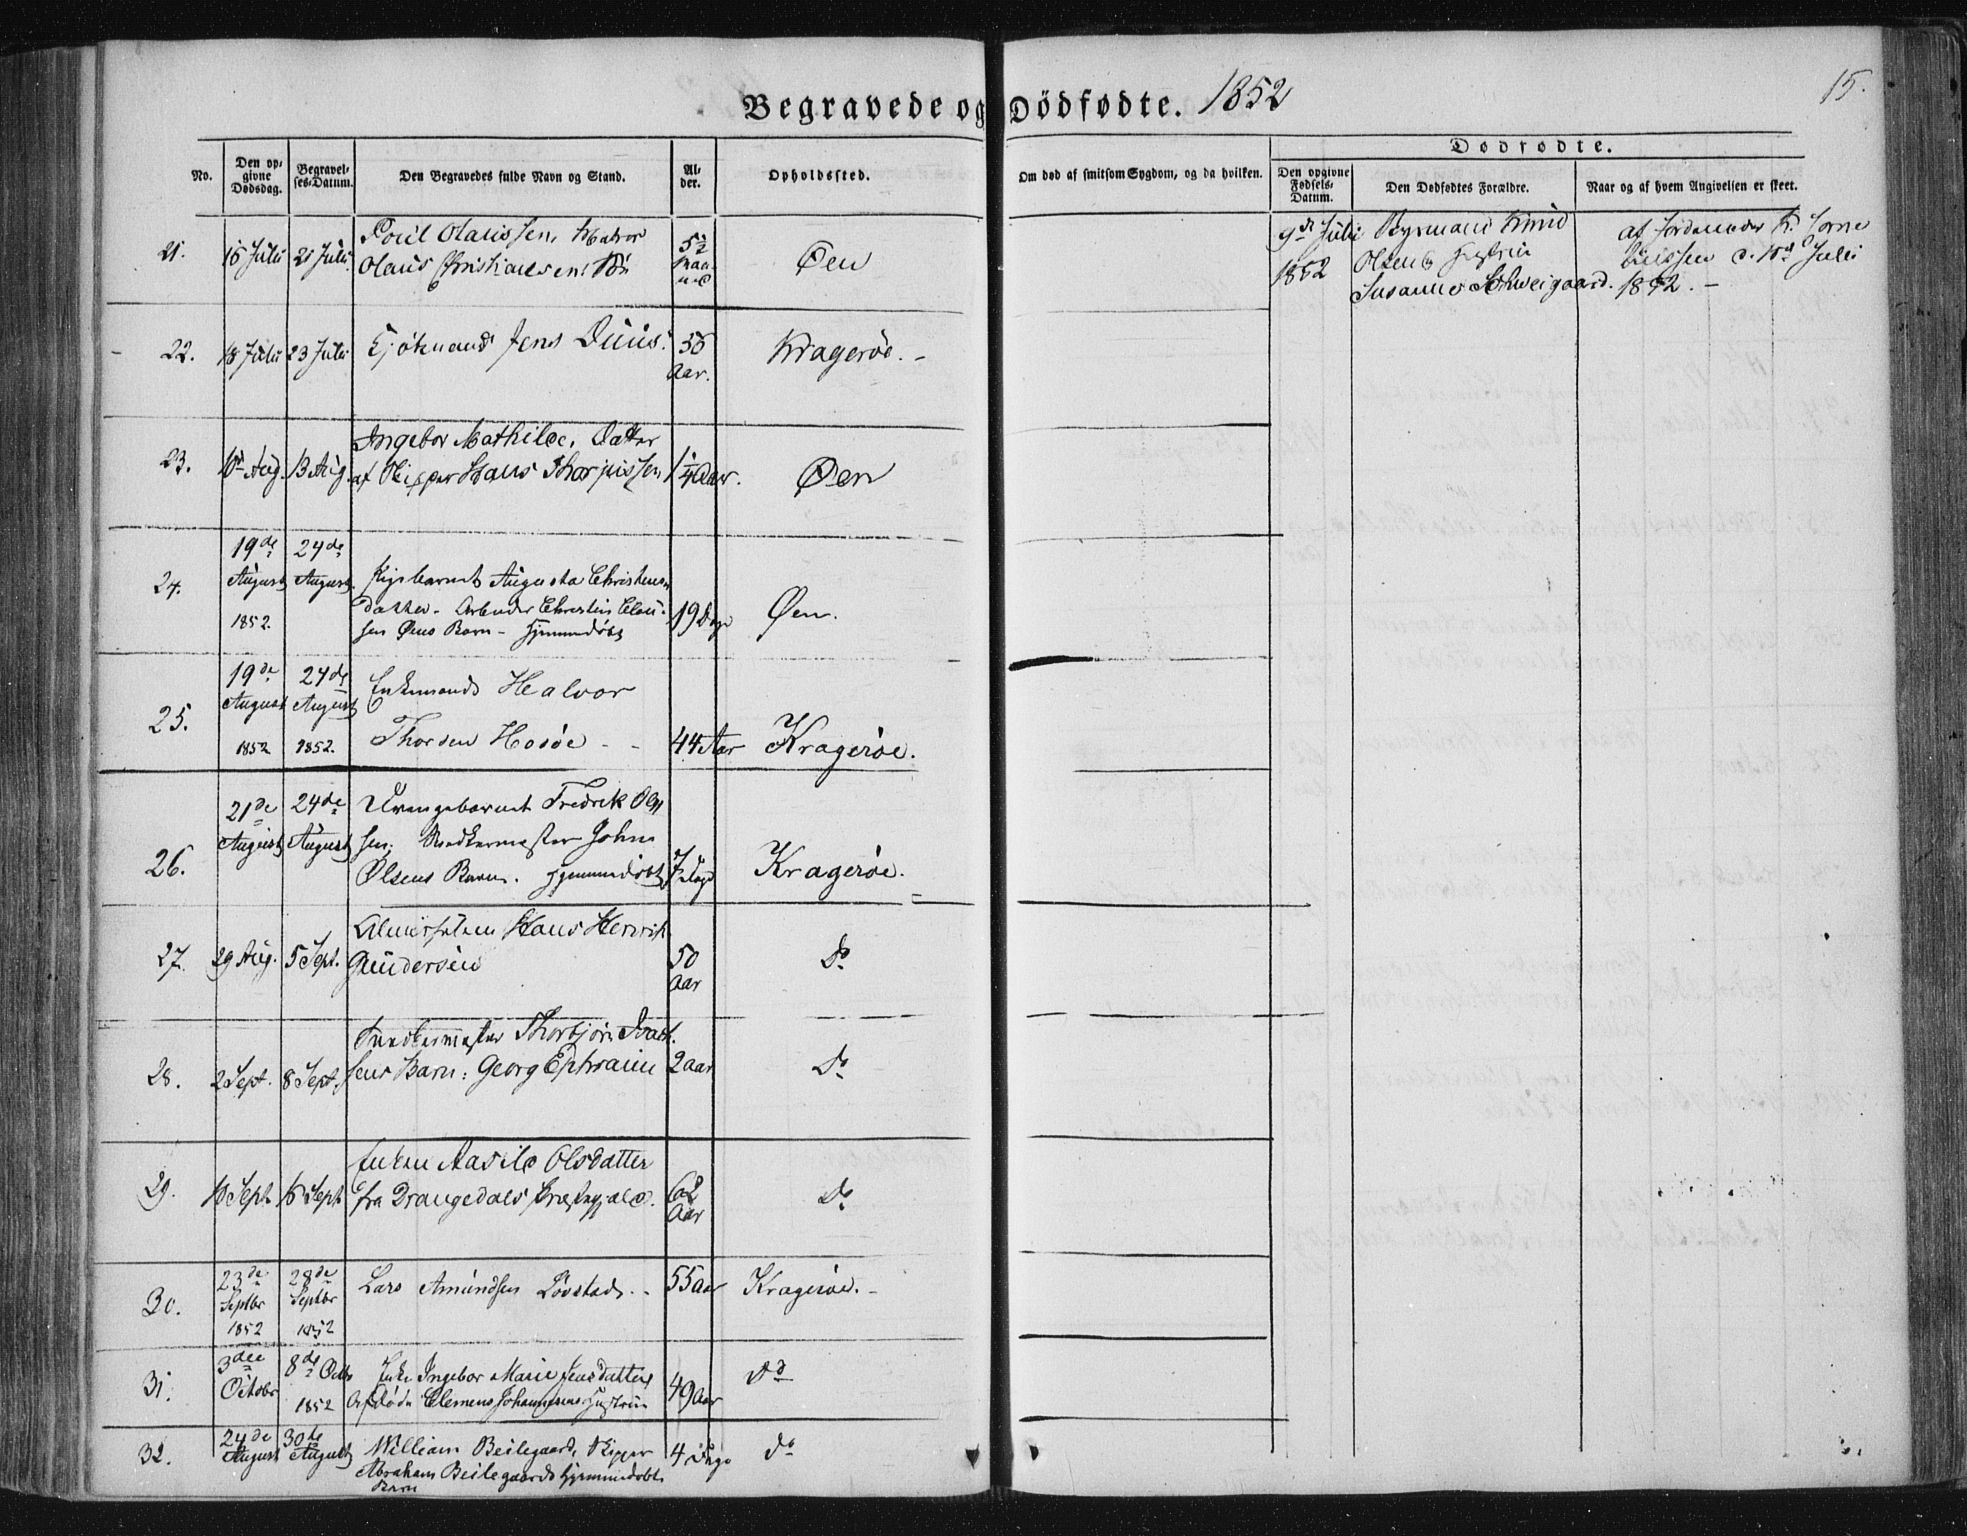 Begravede og Dödfødte. 1852
15.
No.
Den opgivne Dødsdag.
Begravelses-Datum.
Den Begravedes fulde Navn og Stand.
Alder.
Opholdssted.
Om død af smitsom Sygdom, og da hvilken.
Dødfødte.
Den opgivne Fødsels-Datum.
Den Dødfødtes Forældre.
Naar og af hvem Angivelsen er skeet.
21. 16 Juli 21 Juli. Poul Olaussen, Matros
Olaus Christiansens 5½ Maaned Øen
9de Juli 1852
Olsen & Hustrue
Susanne Schweigaard.
af Jordemoder
Juli
1852. –
22. 18 Juli 23 Juli Sjömand Jens Duus. 56 Aar. Kragerøe. –
23. 10de Aug. 13 Aug. Ingebor Mathilde, Datter
af Skipper Hans Thorjussen 1¼ Aar. Øen
24. 19de August 1852. 24de August Pigebarnet Augusta Christens-
datter. Arbeider Christen Clau-
sen Øens Barn – hjemmedöbt 19 Dage Øen.
25. 19de August 1852 24de August 1852. Enkemand Halvor
Thorsen Hosöe – – 44 Aar Kragerøe.
26. 21de August 24de August Drengebarnet Fredrik Ols
sen, Snedkermester John
Olsens Barn. hjemmedöbt 7 Dage Kragerøe.
27. 29 Aug. 5 Sept. Almisselem Hans Henrik
Gundersen 50 Aar Do
28. 2 Sept. 8 Sept. Snedkermester Thorbjörn Isach
sens Barn: Georg Ephraim 2 aar Do
29. 10 Sept. 16 Sept. Enken Aasild Olsdatter
fra Drangedals Præstegjæld. 62 Aar Do
30. 23de Septbr 1852 28de Septbr 1852 Lars Amundsen Lövstad. – 55 Aar Kragerøe. –
31. 3die October 8de Octb 1852 Enke Ingebor Marie Jensdatter,
Afdöde Clemens Johannesens Hustrue 49 Aar Do
32. 24de August 30te August William Beilegaard, Skipper
Abraham Beilegaards hjemmedöbte
Barn 4 Dage do